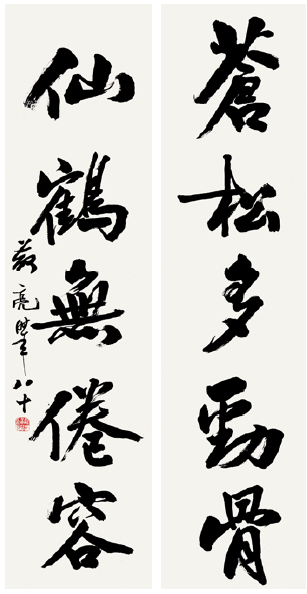 蒼松多勁骨
仙鶴無倦容
八十